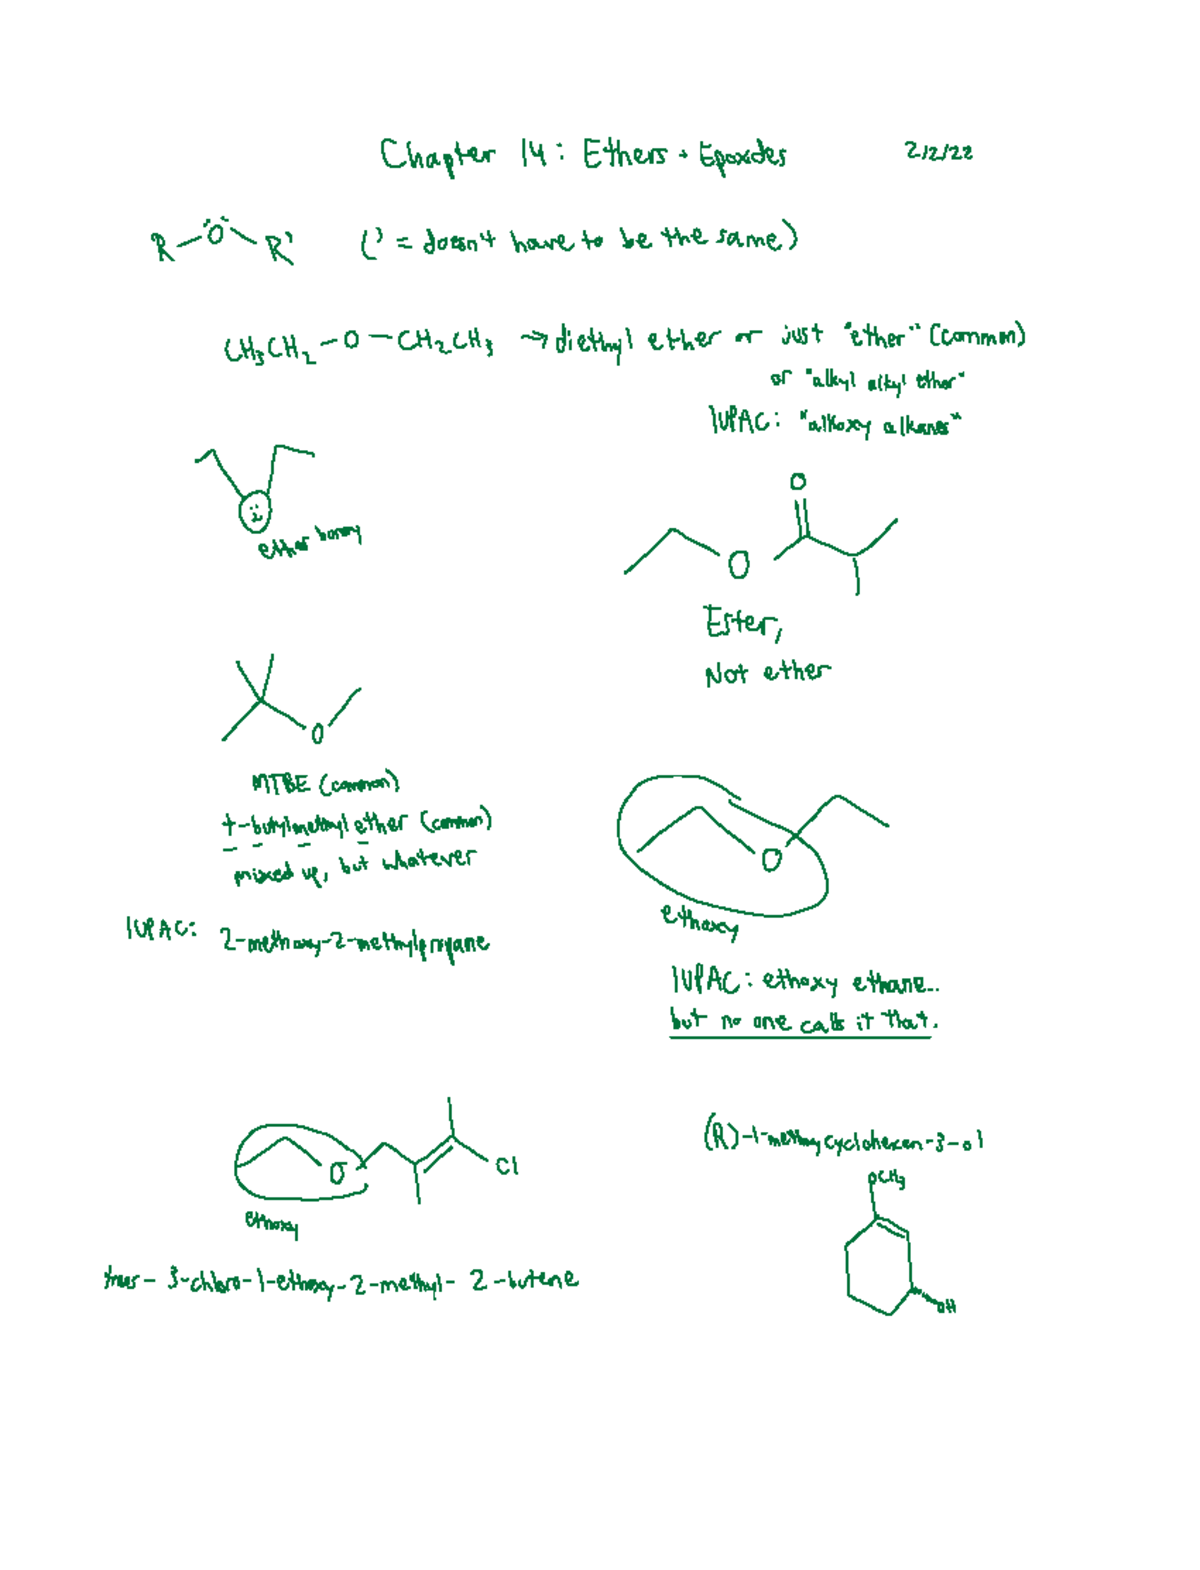 Chapter 14: Ethers + Epoxides 2/2/22
R-O-R' (' = doesn't have to be the same)
CH3CH2-O-CH2CH3 → diethyl ether or just "ether" (common)
or "alkyl alkyl ether"
IUPAC: "alkoxy alkanes"
ether bunny
O
O
Ester,
Not ether
O
MTBE (common)
t-butylmethyl ether (common)
mixed up, but whatever
IUPAC: 2-methoxy-2-methylpropane
O
ethoxy
IUPAC: ethoxy ethane...
but no one calls it that.
O Cl
ethoxy
trans-3-chloro-1-ethoxy-2-methyl-2-butene
(R)-1-methoxycyclohexen-3-ol
OCH3
OH